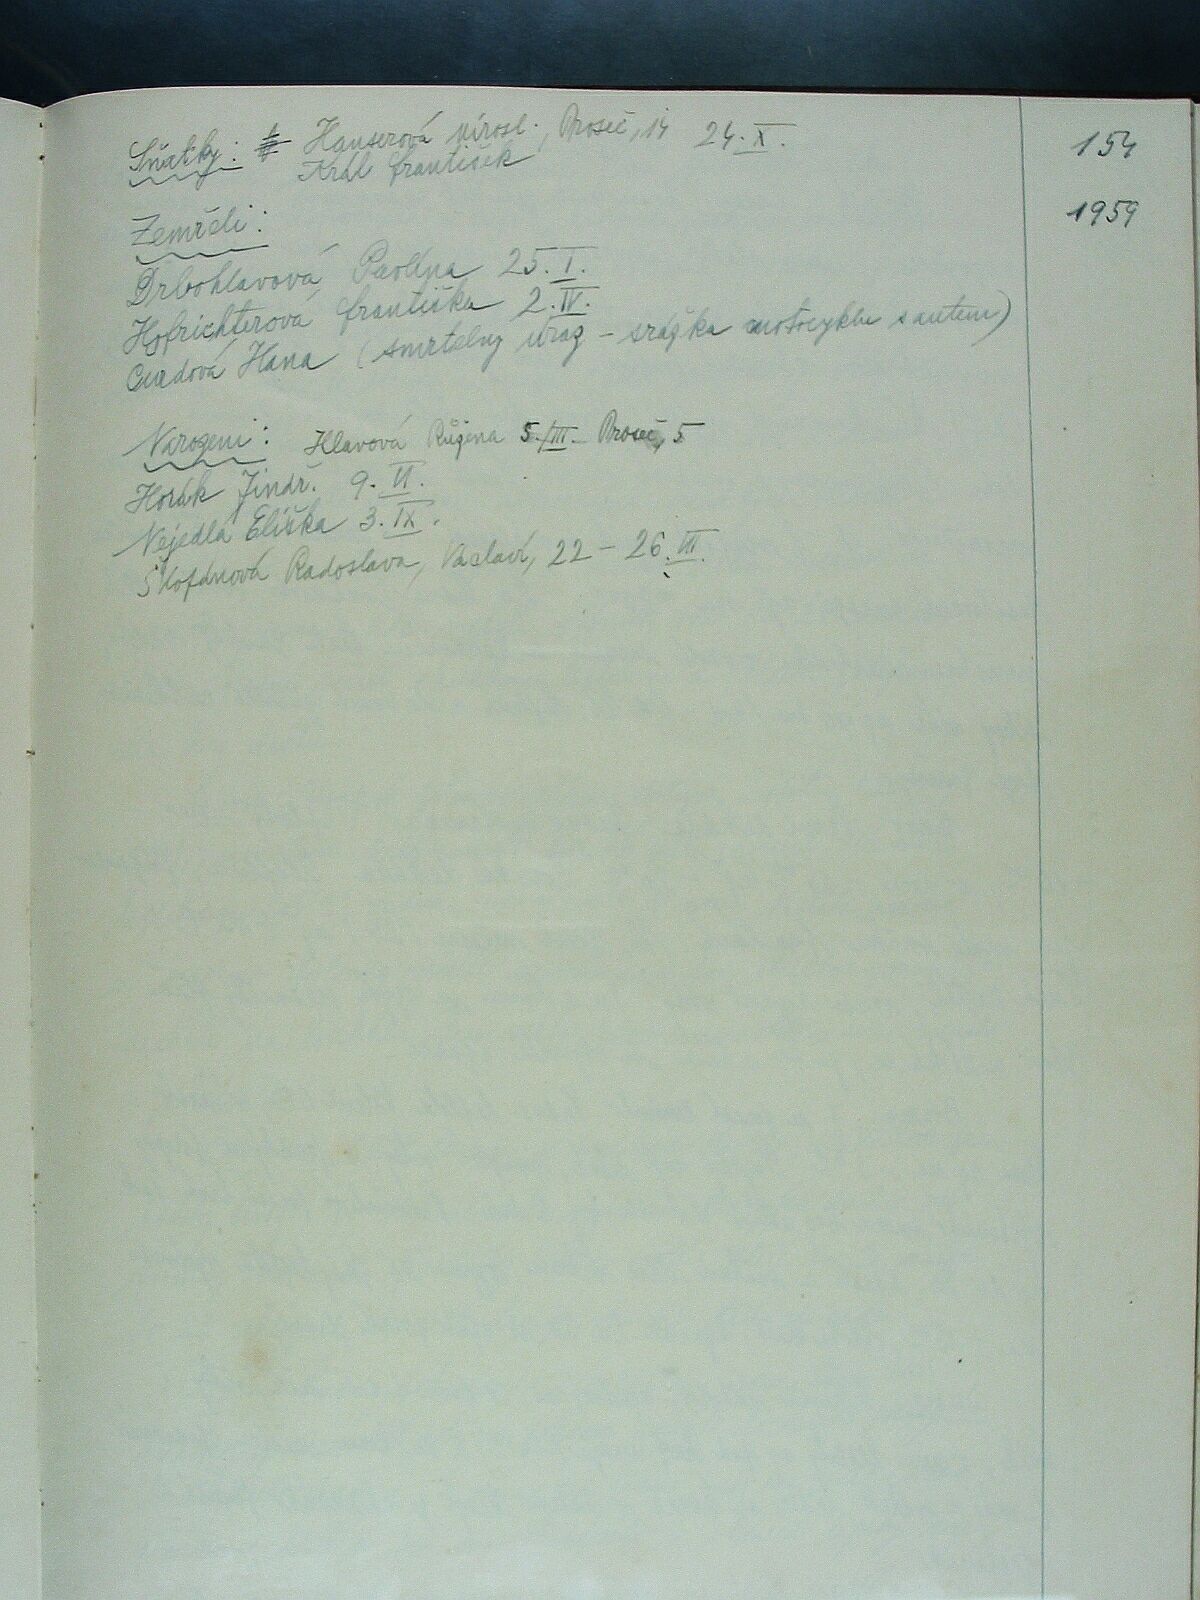 Sňatky: Hanserová Mirosl., Proseč, 14 24. X.
Král František
154
1959
Zemřeli:
Drbohlavová Pavlína 25. I.
Hofrichterová Františka 2. IV.
Hana (smrtelný úraz – srážka motocyklu s autem)
Narozeni: Hlavová Růžena 5./III. Proseč, 5
Horák Jindř. 9. VI.
Nejedlá Eliška 3. IX.
Radoslava, Václaví, 22 – 26. III.